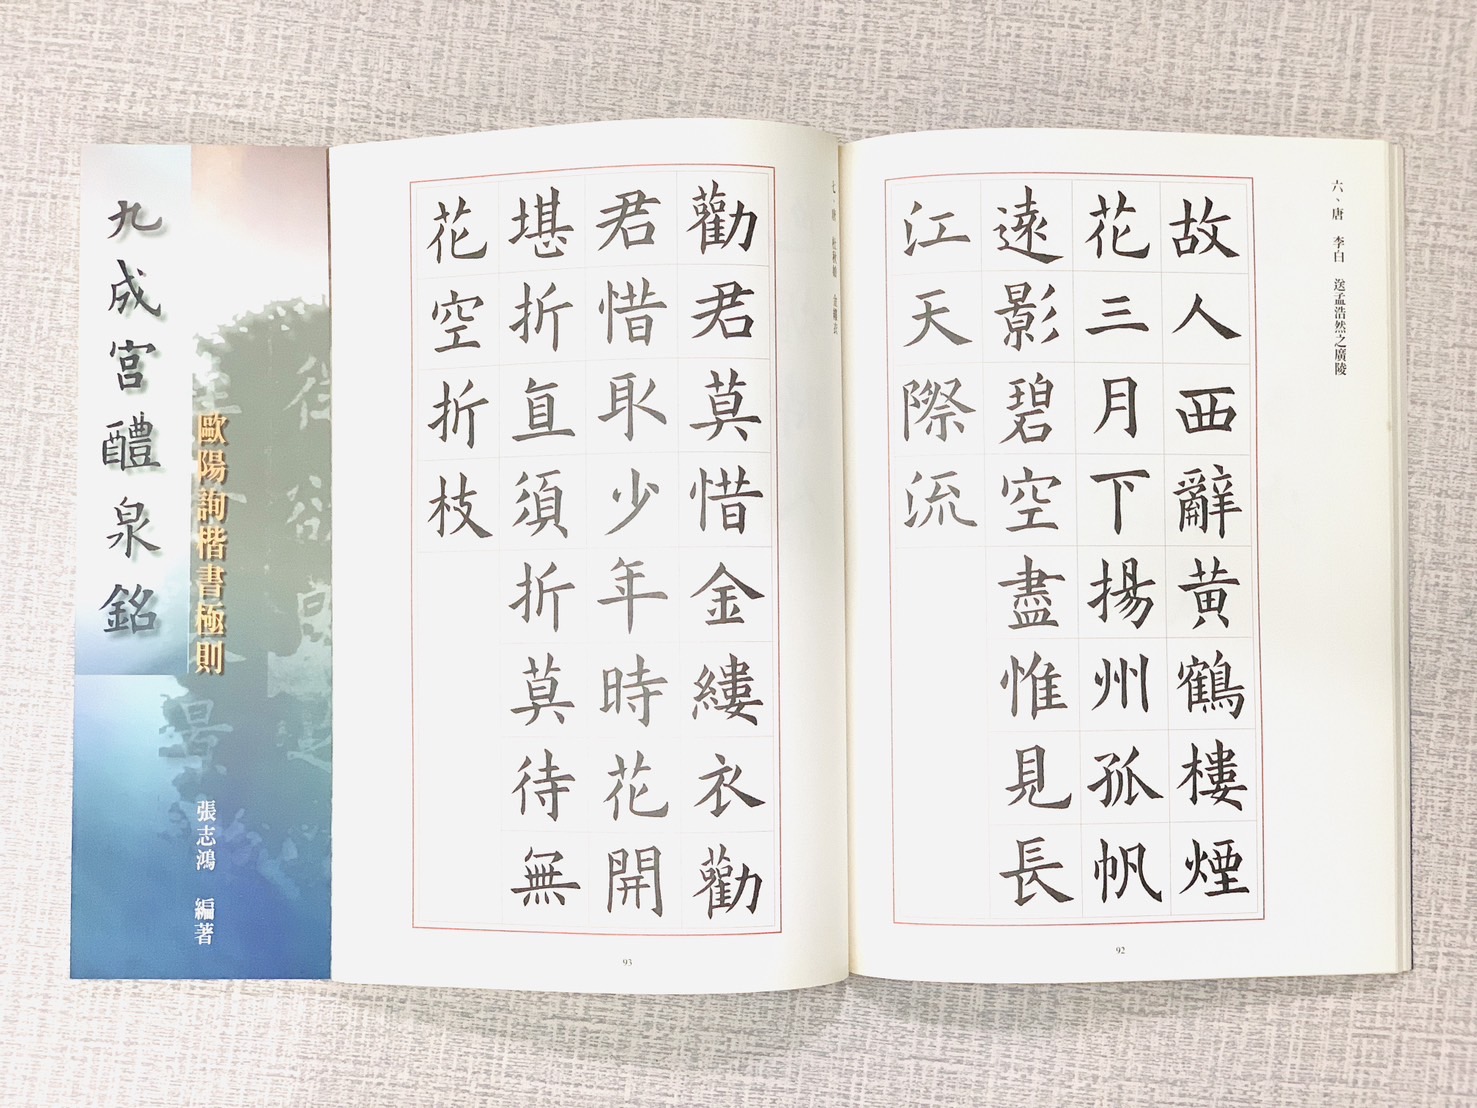 六、唐 李白 送孟浩然之廣陵
故人西辭黃鶴樓煙
花三月下揚州孤帆
遠影碧空盡惟見長
江天際流
92
七、唐 杜秋娘 金縷衣
勸君莫惜金縷衣勸
君惜取少年時花開
堪折直須折莫待無
花空折枝
93
歐陽詢楷書極則
張志鴻 編著
九成宮醴泉銘